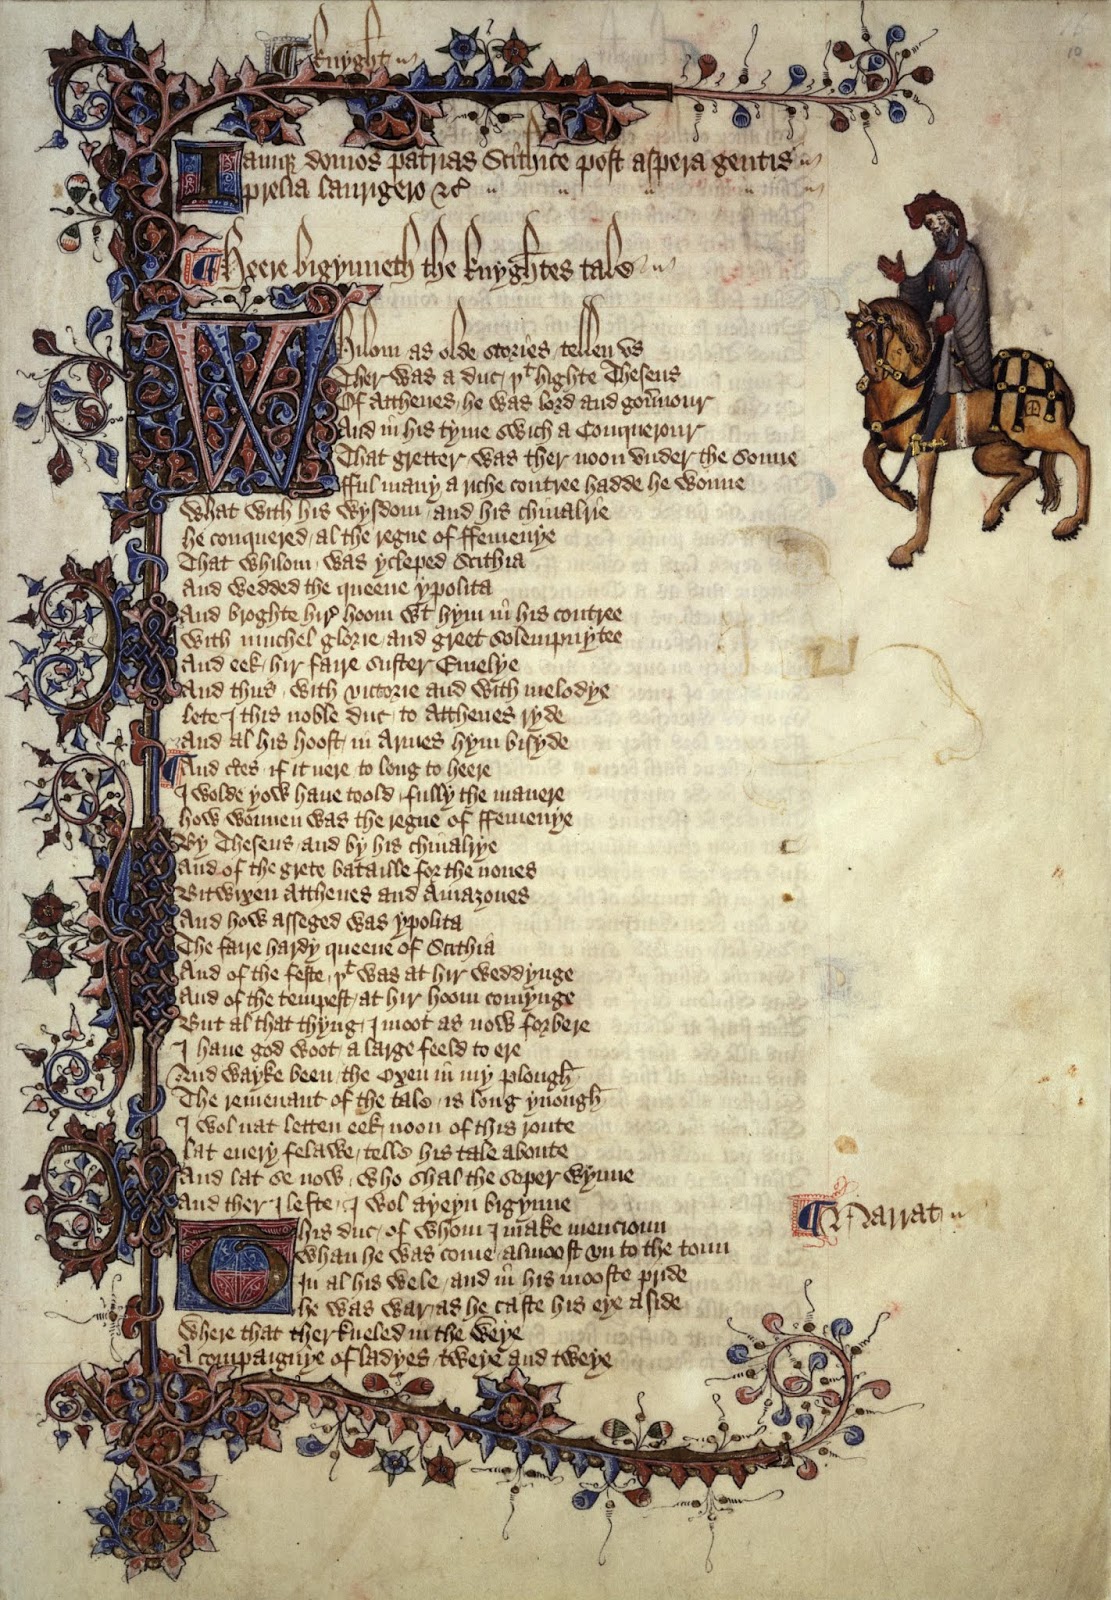 ¶ knyght
Iamque domos patrias Scithice post aspera gentis
prelia laurigero &c
¶ Heere bigynneth the knyghtes tale
Whilom as olde stories tellen vs
Ther was a duc þᵗ highte Theseus
Of Atthenes he was lord and gou̅nour
And in his tyme swich a Conquerour
That gretter was ther noon vnder the sonne
fful many a riche contree hadde he wonne
What with his wysdom and his chiualrie
he conquered al the regne of ffemenye
That whilom was ycleped Scithia
And wedded the queene ypolita
And broghte hir hoom wᵗ hym in his contree
With muchel glorie and greet solempnytee
And eek hir faire suster Emelye
And thus with victorie and with melodye
lete I this noble duc to Atthenes ryde
And al his hoost in Armes hym bisyde
¶ And c̃tes if it nere to long to heere
I wolde yow haue toold fully the manere
how wonnen was the regne of ffemenye
By Theseus and by his chiualrye
And of the grete bataille for the nones
Bitwixen Atthenes and Amazones
And how asseged was ypolita
The faire hardy queene of Scithia
And of the feste þᵗ was at hir weddynge
And of the tempest at hir hoom comynge
But al that thyng I moot as now forbere
I haue god woot a large feeld to ere
And wayke been the Oxen in my plough
The remenant of the tale is long ynough
I wol nat letten eek noon of this route
lat euery felawe telle his tale aboute
And lat se now who shal the soper wynne
And ther I lefte I wol ayeyn bigynne
This duc of whom I make mencioun
¶ Narrat
Whan he was come almoost vn to the toun
In al his wele and in his mooste pride
he was war as he caste his eye aside
Where that ther kneled in the weye
A compaignye of ladyes tweye and tweye
10